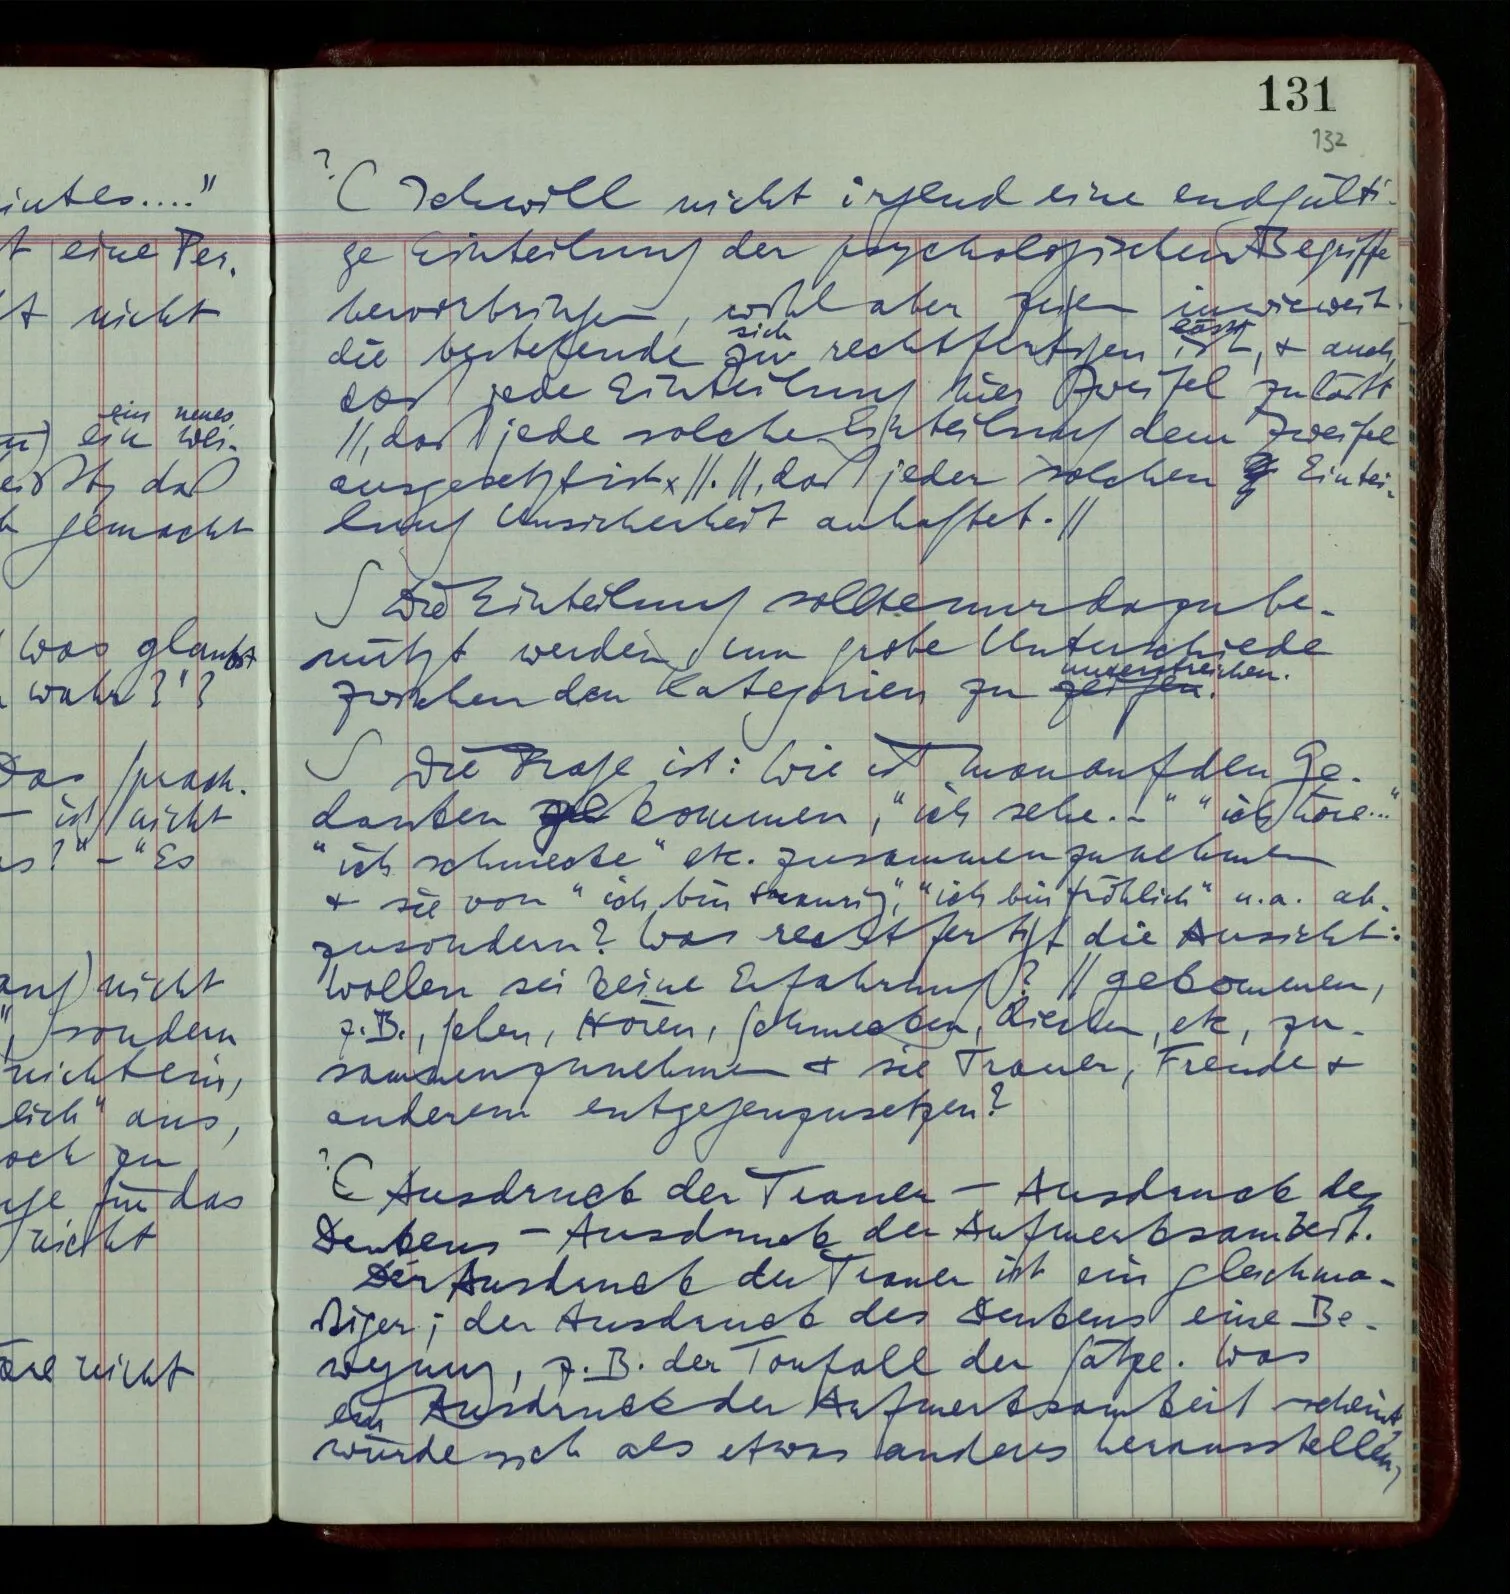 intes...."
t eine Per-
t nicht
ein neues
ein Wei-
eißt, daß
gemacht
was glaubst
wahr?'?
Das sprach-
– ist nicht
s?" – "Es
auf) nicht
", sondern
nicht ein,
lich" aus,
och zu
ge für das
nicht
nicht
131
132
? ( Ich will nicht irgend eine endgülti-
ge Einteilung der psychologischen Begriffe
hervorbringen, wohl aber zeigen inwieweit
sich läßt
die bestehende zu rechtfertigen ist, & auch,
daß jede Einteilung hier Zweifel zuläßt
//, daß jede solche Einteilung dem Zweifel
ausgesetzt ist //. //, daß jeder solchen Eintei-
lung Unsicherheit anhaftet. //
∫ Die Einteilung sollte nur dazu be-
nützt werden, um grobe Unterschiede
unterstreichen.
zwischen den Kategorien zu zeigen.
∫ Die Frage ist: Wie ist man auf den Ge-
danken ge kommen, "ich sehe..." "ich höre..."
"ich schmecke" etc. zusammenzunehmen
& sie von "ich bin traurig", "ich bin fröhlich" u.a. ab-
zusondern? Was rechtfertigt die Ansicht:
Wollen sei keine Erfahrung? // gekommen,
z.B., Sehen, Hören, Schmecken, Riechen, etc, zu-
sammenzunehmen & sie Trauer, Freude &
anderem entgegenzusetzen?
? ( Ausdruck der Trauer – Ausdruck des
Denkens – Ausdruck der Aufmerksamkeit.
Der Ausdruck der Trauer ist ein gleichmä-
ßiger; der Ausdruck des Denkens eine Be-
wegung, z.B. der Tonfall der Sätze. Was
ein Ausdruck der Aufmerksamkeit scheint
würde sich als etwas anderes herausstellen,